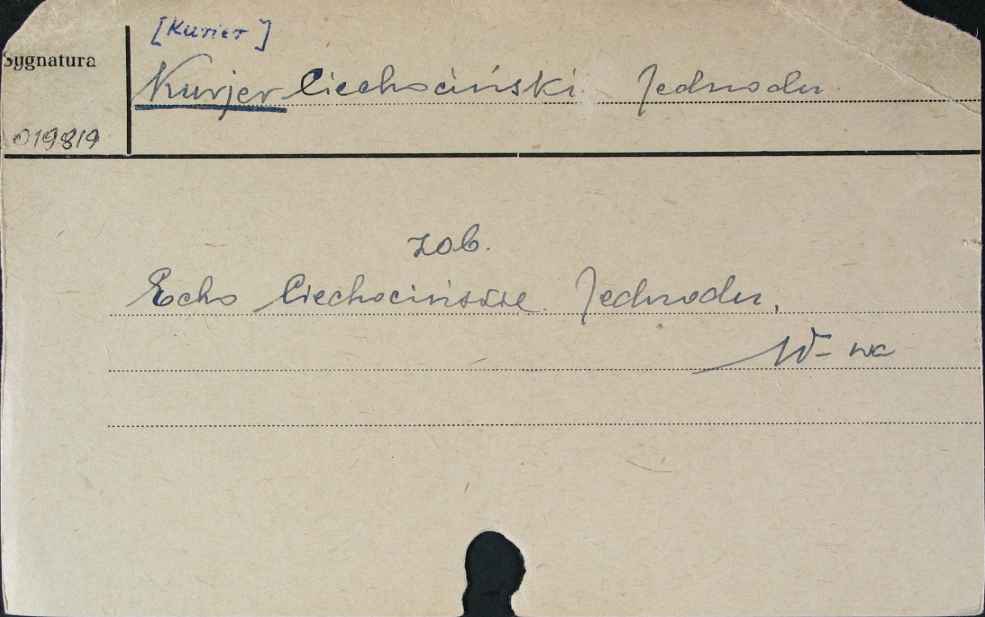 [Kurier]
Sygnatura
Kurjer Ciechociński. Jednodn.
019819
zob.
Echo Ciechocińskie. Jednodn.,
W-wa